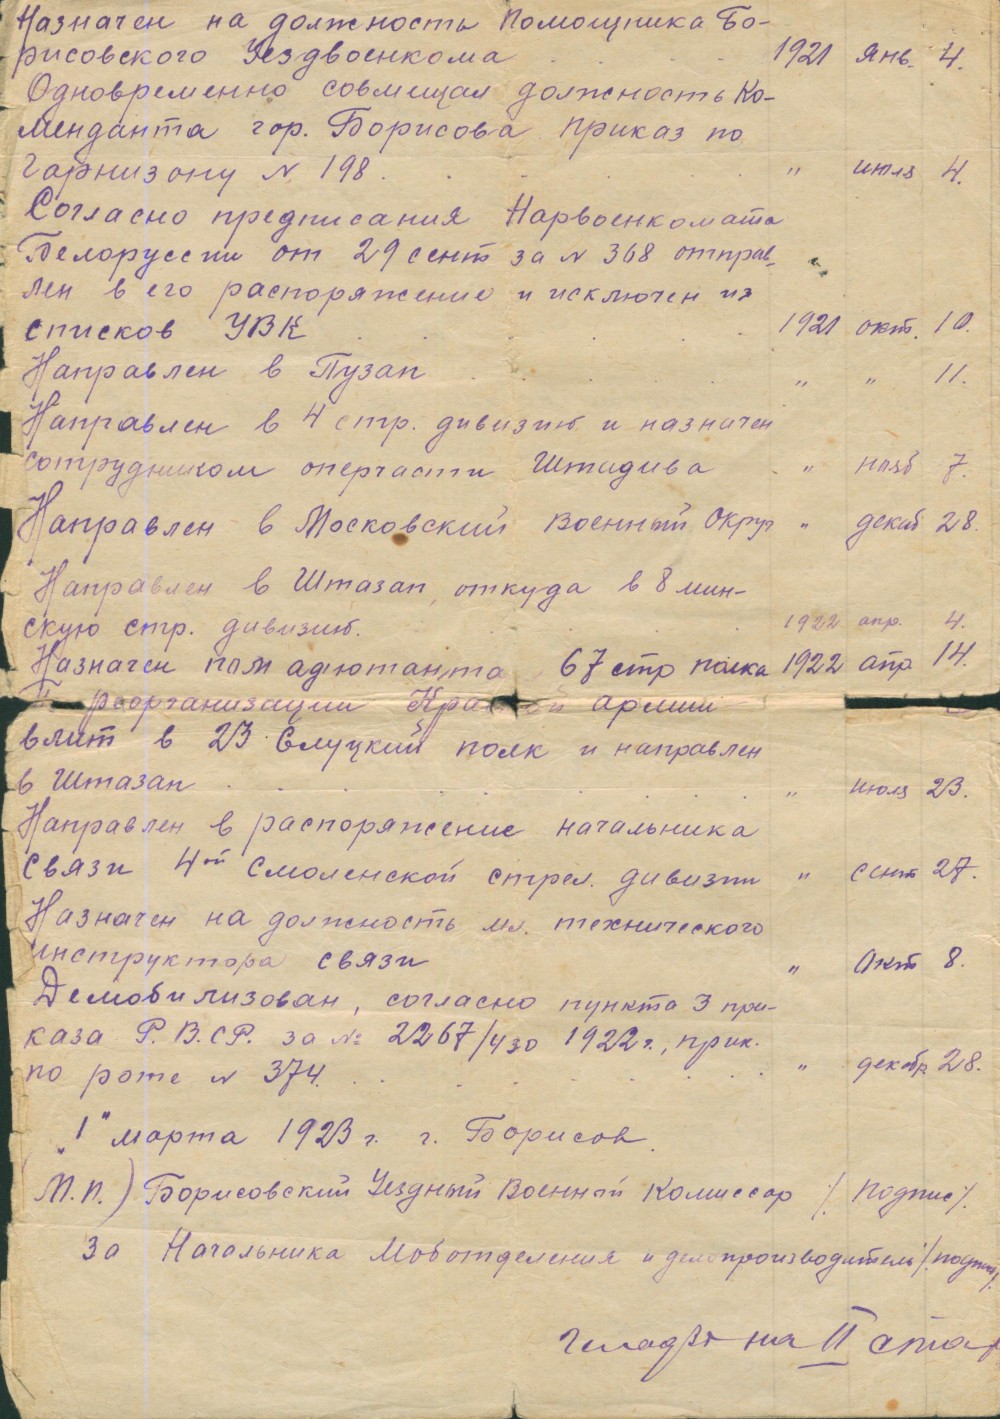 Назначен на должность Помощника Бо-
рисовского Уездвоенкома . . . . 1921 янв. 4.
Одновременно совмещал должность Ко-
менданта гор. Борисова приказ по
гарнизону № 198 . . . . . „ июля 4.
Согласно предписания Нарвоенкомата
Белоруссии от 29 сент за № 368 отправ-
лен в его распоряжение и исключен из
списков УВК . . . . . 1921 окт. 10.
Направлен в Пузап . . . . . „ „ 11.
Направлен в 4 стр. дивизию и назначен
сотрудником оперчасти Штадива . „ нояб 7.
Направлен в Московский Военный Округ „ декаб 28.
Направлен в Штазап, откуда в 8 мин-
скую стр. дивизию. . . . . 1922 апр. 4.
Назначен пом адютанта 67 стр полка 1922 апр 14.
реорганизации Красной армии
влит в 23 Слуцкий полк и направлен
в Штазап . . . . . . „ июля 23.
Направлен в распоряжение начальника
связи 4ой Смоленской стрел. дивизии „ сент 27.
Назначен на должность мл. технического
инструктора связи „ Окт 8.
Демобилизован, согласно пункта 3 при-
каза Р.В.СР. за № 2267/430 1922 г., прик.
по роте № 374. . . . . . „ декабр 28.
„1" марта 1923 г. г. Борисов.
(М.П.) Борисовский Уездный Военный Комиссар /Подпись/.
За Начальника Моботделения и делопроизводитель /подпись/.
на II стар